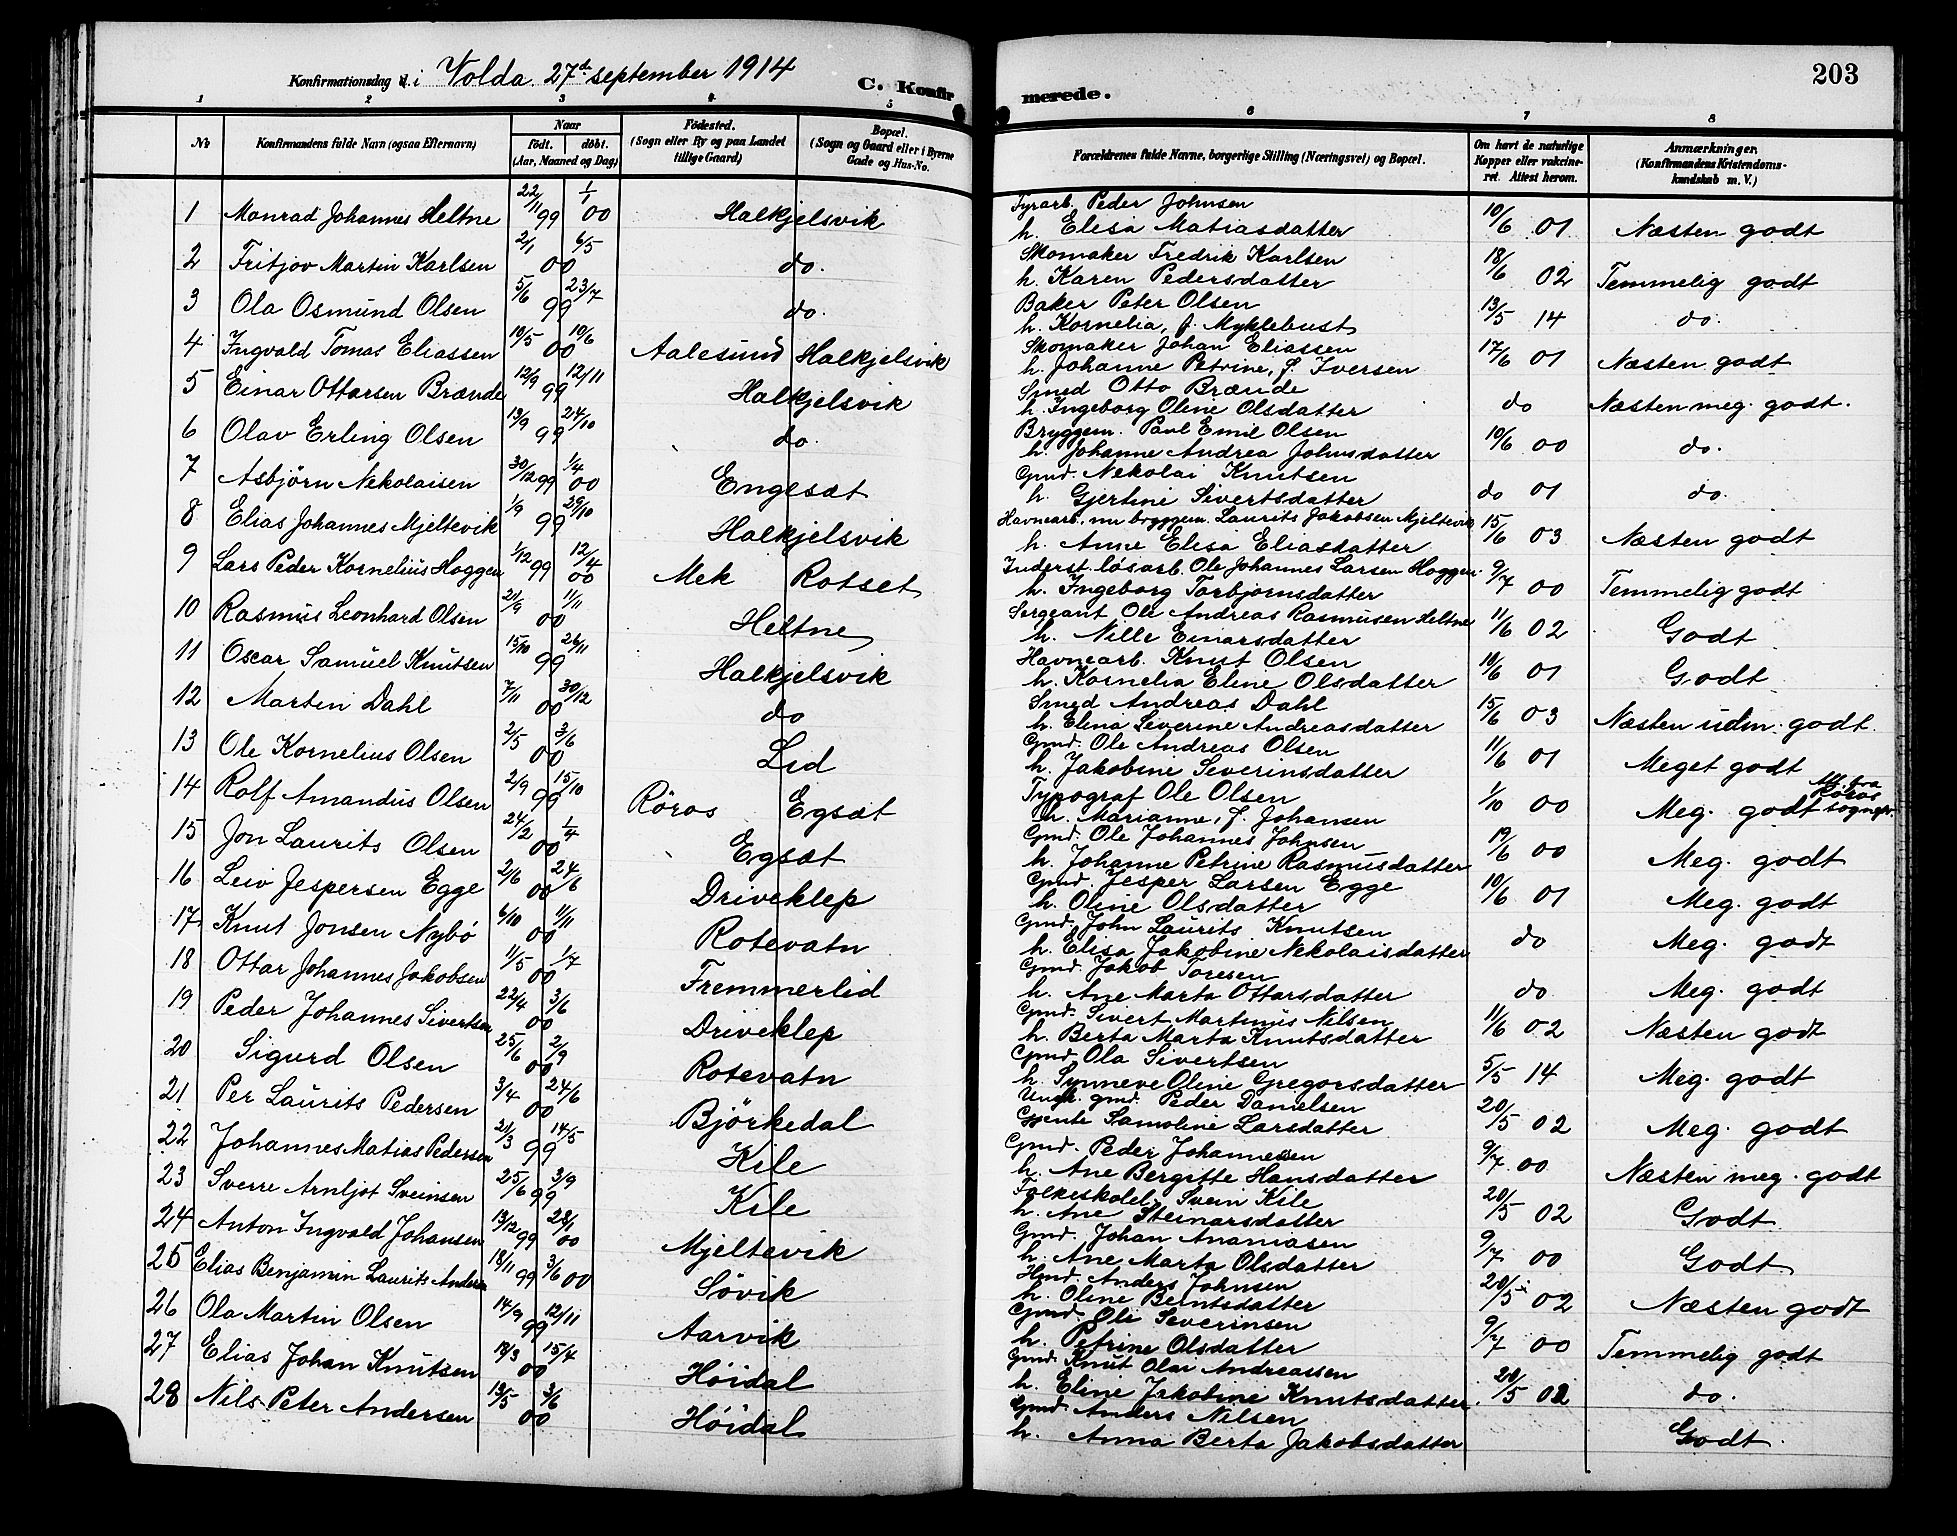 Konfirmationsdag d. i Volda 27de september 1914
C. Konfir
merede.
203
1 2 3 4 5 6 7 8
No
Konfirmandens fulde Navn (ogsaa Efternavn)
Naar
födt. döbt.
(Aar, Maaned og Dag)
Födested.
(Sogn eller By og paa Landet
tillige Gaard)
Bopæl.
(Sogn og Gaard eller i Byerne
Gade og Hus-No.
Forældrenes fulde Navne, borgerlige Stilling (Næringsvei) og Bopæl.
Om havt de naturlige
Kopper eller vakcine-
ret. Attest herom.
Anmærkninger.
(Konfirmandens Kristendoms-
kundskab m. V.)
1 Monrad Johannes Heltne 22/11 99 1/1 00 Halkjelsvik Fyrarb. Peder Johnsen
h. Elisa Matiasdatter 10/6 01 Næsten godt
2 Fritjov Martin Karlsen 2/1 6/5 00 do. Skomaker Fredrik Karlsen
h. Karen Pedersdatter 18/6 02 Temmelig godt
3 Ola Osmund Olsen 5/6 23/7 99 do. Baker Peter Olsen
h. Kornelia, f. Myklebust 13/5 14 do.
4 Ingvald Tomas Eliassen 10/5 10/6 00 Aalesund Halkjelsvik Skomaker Johan Eliassen
h. Johanne Petrine, f. Iversen 17/6 01 Næsten godt
5 Einar Ottarsen Brænde 12/9 12/11 99 Halkjelsvik Smed Otto Brænde
h. Ingeborg Oline Olsdatter do Næsten meg. godt.
6 Olav Erling Olsen 13/9 24/10 99 do. Bryggem. Paul Emil Olsen
h. Johanne Andrea Johnsdatter 10/6 00 do.
7 Asbjörn Nekolaisen 30/12 99 1/4 00 Engesæt Gmd. Nekolai Knutsen
h. Gjertine Sivertsdatter do 01 do.
8 Elias Johannes Mjeltevik 1/9 29/10 99 Halkjelsvik Havnearb., nu bryggem. Laurits Jakobsen Mjeltevik
h. Anne Elisa Eliasdatter 15/6 03 Næsten godt
9 Lars Peder Kornelius Hoggen 1/12 99 12/4 00 Mek Rotset Inderst. løsarb. Ole Johannes Larsen Hoggen
h. Ingeborg Torbjørnsdatter 9/7 00 Temmelig godt
10 Rasmus Leonhard Olsen 21/9 11/11 00 Heltne Sergeant Ole Andreas Rasmusen Heltne
h. Nille Einarsdatter 11/6 02 Godt
11 Oscar Samuel Knutsen 15/10 26/11 99 Halkjelsvik Havnearb. Knut Olsen
h. Kornelia Eline Olsdatter 10/6 01 Godt
12 Martin Dahl 7/11 30/12 00 do Smed Andreas Dahl
h. Elina Severine Andreasdatter 15/6 03 Næsten udm. godt.
13 Ole Kornelius Olsen 2/5 3/6 00 Lid Gmd. Ole Andreas Olsen
h. Jakobine Severinsdatter 11/6 01 Meget godt
14 Rolf Amandus Olsen 2/9 15/10 99 Röros Egsæt Typograf Ole Olsen
h. Marianne, f. Johansen 1/10 00 Meg. godt Röros sognepr.
15 Jon Laurits Olsen 24/2 1/4 00 Egsæt Gmd. Ole Johannes Johnsen
h. Johanne Petrine Rasmusdatter 19/6 00 Meg. godt
16 Leiv Jespersen Egge 2/6 24/6 00 Driveklep Gmd. Jesper Larsen Egge
h. Oline Olsdatter 10/6 01 Meg. godt
17 Knut Jonsen Nybö 6/10 11/11 00 Rotevatn Gmd. John Laurits Knutsen
h. Elisa Jakobine Nekolaisdatter do Meg. godt
18 Ottar Johannes Jakobsen 11/5 1/7 00 Fremmerlid Gmd. Jakob Toresen
h. Ane Marta Ottarsdatter do Meg. godt
19 Peder Johannes Sivertsen 22/4 3/6 00 Driveklep Gmd. Sivert Martinus Nilsen
h. Berta Marta Knutsdatter 11/6 02 Næsten godt
20 Sigurd Olsen 25/6 2/9 00 Rotevatn Gmd. Ola Sivertsen
h. Synneve Oline Gregorsdatter 5/5 14 Meg. godt
21 Per Laurits Pedersen 3/4 24/6 00 Björkedal Ungk. gmd. Peder Danielsen
Gjente Samoline Larsdatter 20/5 02 Meg. godt
22 Johannes Matias Pedersen 21/3 14/5 99 Kile Gmd. Peder Johannessen
h. Ane Bergitte Hansdatter 9/7 00 Næsten meg. godt
23 Sverre Arnljot Sveinsen 25/6 3/9 99 Kile Folkeskolel. Svein Kile
h. Ane Steinarsdatter 20/5 02 Godt
24 Anton Ingvald Johansen 13/12 99 28/1 00 Mjeltevik Gmd. Johan Ananiasen
h. Ane Marta Olsdatter 9/7 00 Godt
25 Elias Benjamin Laurits Andersen 18/11 99 3/6 00 Sövik Hmd. Anders Johnsen
h. Oline Bentsdatter 20/5 02 Næsten godt
26 Ola Martin Olsen 14/9 12/11 99 Aarvik Gmd. Ole Severinsen
h. Petrine Olsdatter 9/7 00 Temmelig godt
27 Elias Johan Knutsen 18/3 15/4 00 Höidal Gmd. Knut Olai Andreassen
h. Eline Jakobine Knutsdatter 20/5 02 do.
28 Nils Peter Andersen 13/5 3/6 00 Höidal Gmd. Anders Nilsen
h. Anna Berta Jakobsdatter Godt.